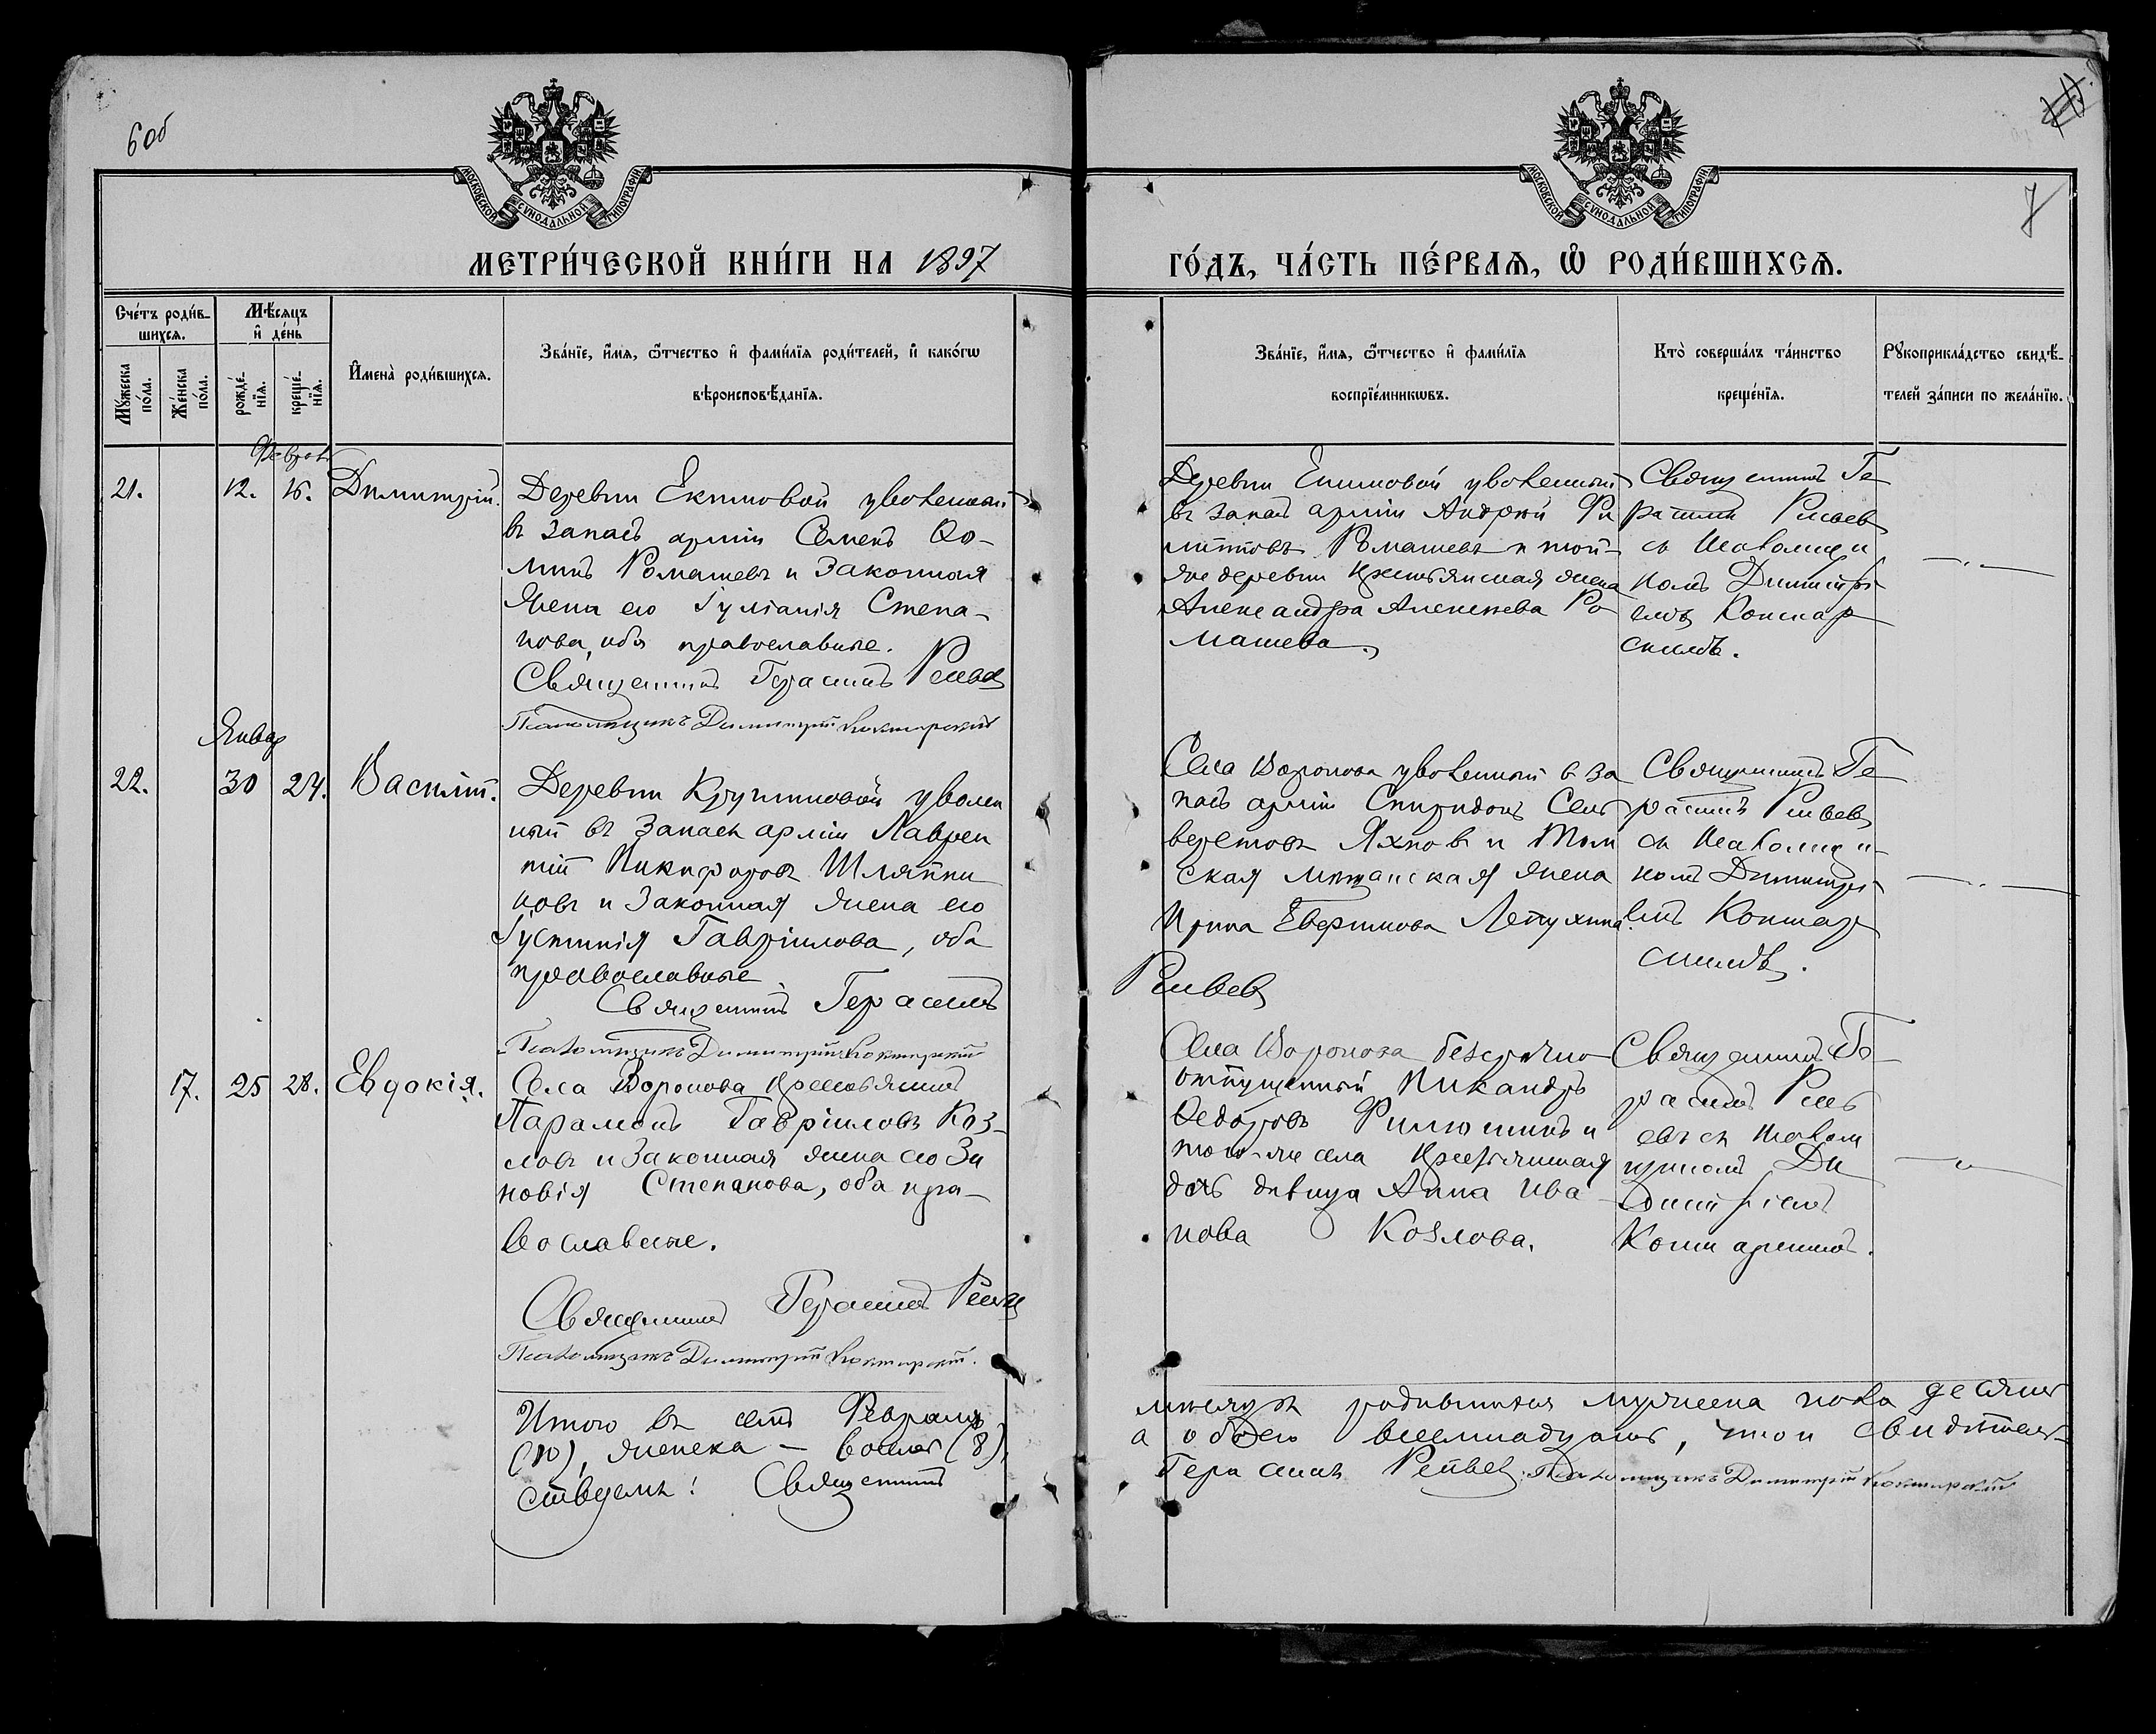 6 об
7
МОСКОВСКОЙ СУНОДАЛЬНОЙ ТИПОГРАФІИ
МОСКОВСКОЙ СУНОДАЛЬНОЙ ТИПОГРАФІИ
МЕТРИ́ЧЕСКОЙ КНИ́ГИ НА 1897
ГО́ДЪ, ЧА́СТЬ ПЕ́РВАѦ, Ѡ҆ РОДИ́ВШИХСѦ.
Сче́тъ роди́в-
шихсѧ.
Мꙋ́жеска по́ла.
Же́нска по́ла.
Мѣ́сѧцъ
и҆ де́нь
рожде́-
нїѧ.
креще́-
нїѧ.
И҆мена̀ роди́вшихсѧ.
Зва́нїе, и҆́мѧ, ѻ҆́тчество и҆ фами́лїѧ роди́телей, и҆ како́гѡ
вѣроисповѣ́данїѧ.
Зва́нїе, и҆́мѧ, ѻ҆́тчество и҆ фами́лїѧ
воспрїе́мникѡвъ.
Кто̀ соверша́лъ та́инство
креще́нїѧ.
Рꙋкоприкла́дство свидѣ́-
телей за́писи по жела́нїю.
Феврал
21. 12. 16. Димитрій.
Деревни Екимовой уволенный
въ запасъ арміи Семенъ Ѳо-
минъ Ромашевъ и законная
жена его Іуліанія Степа-
нова, оба православные.
Священникъ Герасимъ
Псаломщикъ Димитрій
Деревни Екимовой уволенный
въ запасъ арміи Андрей Фи
липповъ Ромашевъ и той-
же деревни крестьянская жена
Александра Алексѣева Ро
машева.
Священникъ Ге
расимъ
съ Псаломщи
комъ Димитрі
емъ
Январ
22. 30 24. Василій.
Деревни уволен
ный въ запасъ арміи Лаврен
тій Никифоровъ Шляпни
ковъ и законная жена его
Іустинія Гавріилова, оба
православные
Священникъ Герасимъ
Псаломщикъ Димитрій
Села Воронова уволенный въ за
пасъ арміи Спиридонъ Сели
верстовъ Яхновъ и Том
ская мѣщанская жена
Ирина Евфимова Лопухина.
Священникъ Ге
расимъ
съ Псаломщи
комъ Димитрі
емъ
17. 25 28. Евдокія.
Села Воронова крестьянинъ
Парамонъ Гавріиловъ Коз-
ловъ и законная жена его Зи
новія Степанова, оба пра-
вославные.
Священникъ Герасимъ
Псаломщикъ Димитрій
Села Воронова безсрочно
отпущенный Никандръ
Ѳедоровъ Филюшинъ и
того-же села крестьянская
дочь дѣвица Анна Ива
нова Козлова.
Священникъ Ге
расимъ
евъ съ Псалом
щикомъ Ди
митріемъ
Итого въ семъ Февралѣ
мѣсяцѣ родившихся мужеска пола десять
(10), женска - восемь (8),
а обоего восемнадцать, что и свидѣтель-
ствуемъ: Священникъ
Герасимъ Псаломщикъ Димитрій